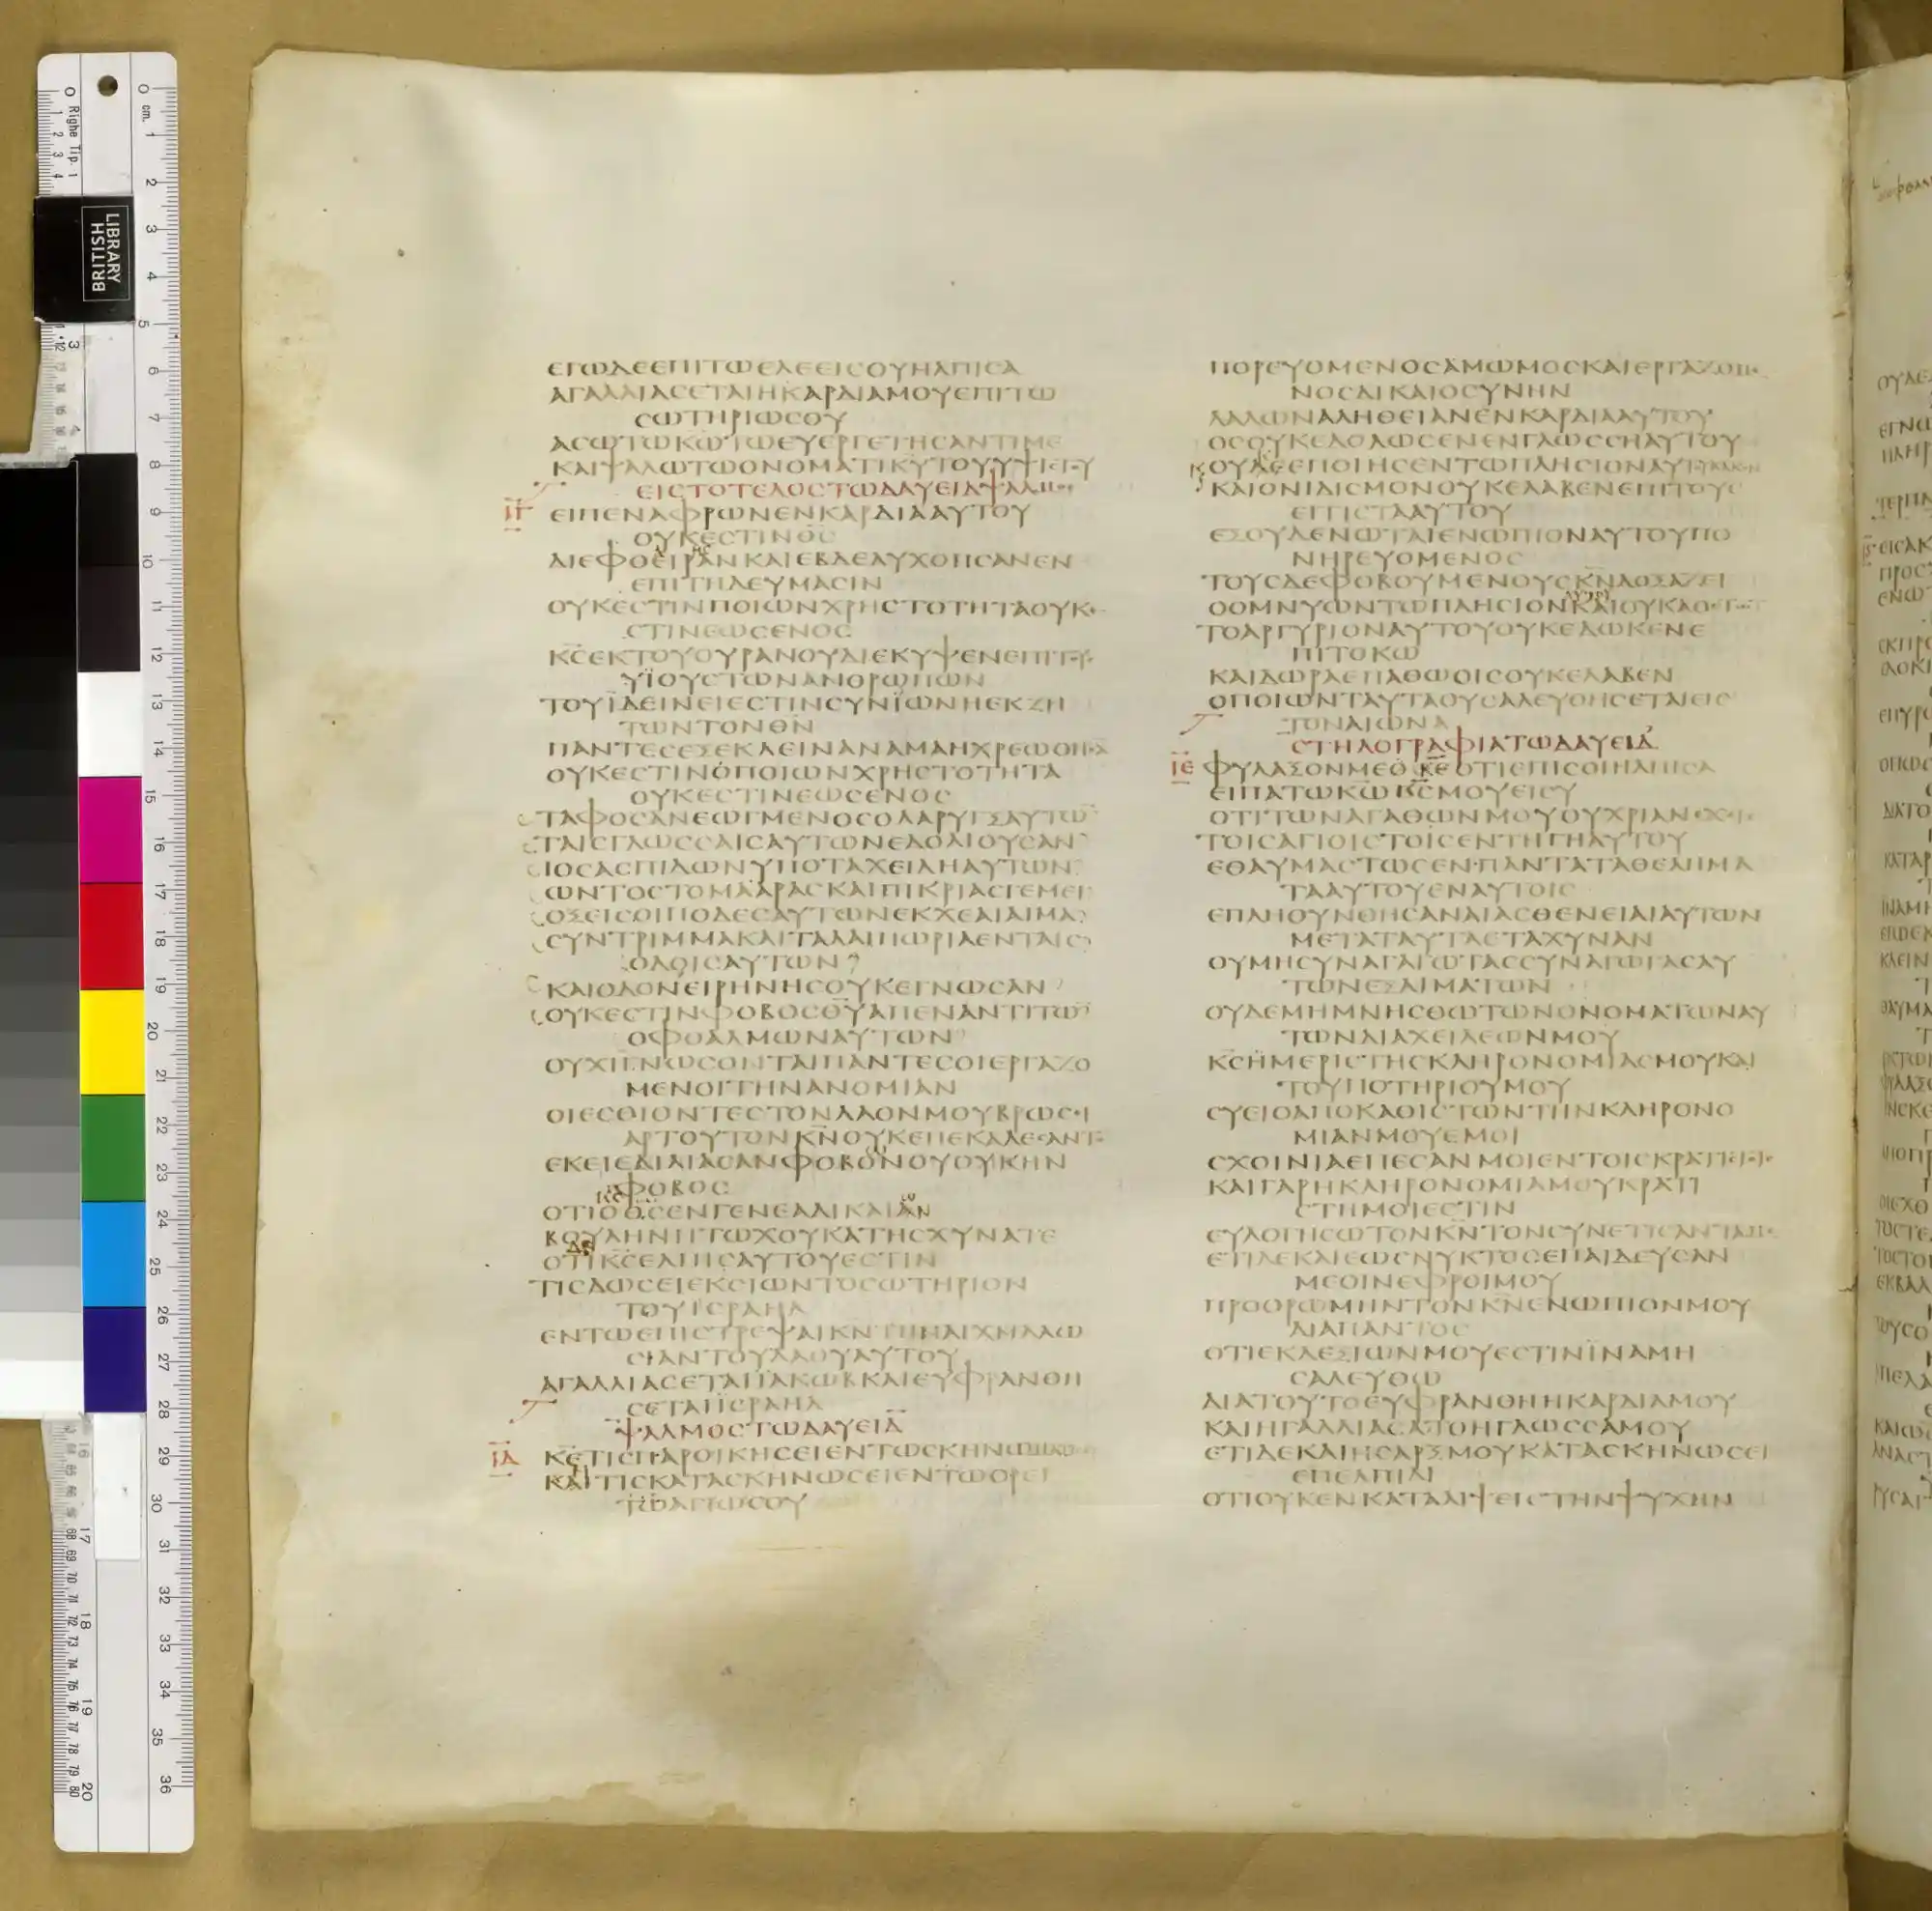 ΕΓΩΔΕΕΠΙΤΩΕΛΕΕΙCΟΥΗΛΠΙCΑ
ΑΓΑΛΛΙΑCΕΤΑΙΗΚΑΡΔΙΑΜΟΥΕΠΙΤΩ
CΩΤΗΡΙΩCΟΥ
ΑCΩΤΩΚ̅Ω̅ΤΩΕΥΕΡΓΕΤΗCΑΝΤΙΜΕ
ΚΑΙΨΑΛΩΤΩΟΝΟΜΑΤΙΚ̅Υ̅ΤΟΥΥΨΙCΤΟΥ
ΕΙCΤΟΤΕΛΟCΤΩΔΑΥΕΙΔΨΑΛΜΟC
ΙΓ ΕΙΠΕΝΑΦΡΩΝΕΝΚΑΡΔΙΑΑΥΤΟΥ
ΟΥΚΕCΤΙΝΘ̅C̅
ΔΙΕΦΘΕΙΡΑΝΚΑΙΕΒΔΕΛΥΧΘΗCΑΝΕΝ
ΕΠΙΤΗΔΕΥΜΑCΙΝ
ΟΥΚΕCΤΙΝΠΟΙΩΝΧΡΗCΤΟΤΗΤΑΟΥΚΕ
CΤΙΝΕΩCΕΝΟC
Κ̅C̅ΕΚΤΟΥΟΥΡΑΝΟΥΔΙΕΚΥΨΕΝΕΠΙΤΟΥC
ΥΪΟΥCΤΩΝΑΝΘΡΩΠΩΝ
ΤΟΥΪΔΕΙΝΕΙΕCΤΙΝCΥΝΪΩΝΗΕΚΖΗ
ΤΩΝΤΟΝΘ̅Ν̅
ΠΑΝΤΕCΕΞΕΚΛΕΙΝΑΝΑΜΑΗΧΡΕΩΘΗCΑ
ΟΥΚΕCΤΙΝΟΠΟΙΩΝΧΡΗCΤΟΤΗΤΑ
ΟΥΚΕCΤΙΝΕΩCΕΝΟC
ΤΑΦΟCΑΝΕΩΓΜΕΝΟCΟΛΑΡΥΓΞΑΥΤΩ̅
ΤΑΙCΓΛΩCCΑΙCΑΥΤΩΝΕΔΟΛΙΟΥCΑΝ
ΙΟCΑCΠΙΔΩΝΥΠΟΤΑΧΕΙΛΗΑΥΤΩΝ
ΩΝΤΟCΤΟΜΑΑΡΑCΚΑΙΠΙΚΡΙΑCΓΕΜΕΙ
ΟΞΕΙCΟΙΠΟΔΕCΑΥΤΩΝΕΚΧΕΑΙΑΙΜΑ
CΥΝΤΡΙΜΜΑΚΑΙΤΑΛΑΙΠΩΡΙΑΕΝΤΑΙC
ΟΔΟΙCΑΥΤΩΝ
ΚΑΙΟΔΟΝΕΙΡΗΝΗCΟΥΚΕΓΝΩCΑΝ
ΟΥΚΕCΤΙΝΦΟΒΟCΘ̅Υ̅ΑΠΕΝΑΝΤΙΤΩ̅
ΟΦΘΑΛΜΩΝΑΥΤΩΝ
ΟΥΧΙΓΝΩCΟΝΤΑΙΠΑΝΤΕCΟΙΕΡΓΑΖΟ
ΜΕΝΟΙΤΗΝΑΝΟΜΙΑΝ
ΟΙΕCΘΙΟΝΤΕCΤΟΝΛΑΟΝΜΟΥΒΡΩCΙ
ΑΡΤΟΥΤΟΝΚ̅Ν̅ΟΥΚΕΠΕΚΑΛΕCΑΝΤΟ
ΕΚΕΙΕΔΙΛΙΑCΑΝΦΟΒΟΝΟΥΟΥΚΗΝ
ΦΟΒΟC
ΟΤΙΟΘ̅C̅ΕΝΓΕΝΕΑΔΙΚΑΙΑΝ
ΒΟΥΛΗΝΠΤΩΧΟΥΚΑΤΗCΧΥΝΑΤΕ
ΟΤΙΚ̅C̅ΕΛΠΙCΑΥΤΟΥΕCΤΙΝ
ΤΙCΔΩCΕΙΕΚCΙΩΝΤΟCΩΤΗΡΙΟΝ
ΤΟΥΙCΡΑΗΛ
ΕΝΤΩΕΠΙCΤΡΕΨΑΙΚ̅Ν̅ΤΗΝΑΙΧΜΑΛΩ
CΙΑΝΤΟΥΛΑΟΥΑΥΤΟΥ
ΑΓΑΛΛΙΑCΕΤΑΙΪΑΚΩΒΚΑΙΕΥΦΡΑΝΘΗ
CΕΤΑΙΪCΡΑΗΛ
ΨΑΛΜΟCΤΩΔΑΥΕΙΔ
ΙΔ Κ̅Ε̅ΤΙCΠΑΡΟΙΚΗCΕΙΕΝΤΩCΚΗΝΩΜΑΤΙ
ΚΑΙΤΙCΚΑΤΑCΚΗΝΩCΕΙΕΝΤΩΟΡΕΙ
ΤΩΑΓΙΩCΟΥ
ΠΟΡΕΥΟΜΕΝΟCΑΜΩΜΟCΚΑΙΕΡΓΑΖΟΜΕ
ΝΟCΔΙΚΑΙΟCΥΝΗΝ
ΛΑΛΩΝΑΛΗΘΕΙΑΝΕΝΚΑΡΔΙΑΑΥΤΟΥ
ΟCΟΥΚΕΔΟΛΩCΕΝΕΝΓΛΩCCΗΑΥΤΟΥ
ΟΥΔΕΕΠΟΙΗCΕΝΤΩΠΛΗCΙΟΝΑΥΤΟΥΚΑΚΟΝ
ΚΑΙΟΝΙΔΙCΜΟΝΟΥΚΕΛΑΒΕΝΕΠΙΤΟΥC
ΕΓΓΙCΤΑΑΥΤΟΥ
ΕΞΟΥΔΕΝΩΤΑΙΕΝΩΠΙΟΝΑΥΤΟΥΠΟ
ΝΗΡΕΥΟΜΕΝΟC
ΤΟΥCΔΕΦΟΒΟΥΜΕΝΟΥCΚ̅Ν̅ΔΟΞΑΖΕΙ
ΟΟΜΝΥΩΝΤΩΠΛΗCΙΟΝΚΑΙΟΥΚΑΘΕΤΩ
ΤΟΑΡΓΥΡΙΟΝΑΥΤΟΥΟΥΚΕΔΩΚΕΝΕ
ΠΙΤΟΚΩ
ΚΑΙΔΩΡΑΕΠΑΘΩΟΙCΟΥΚΕΛΑΒΕΝ
ΟΠΟΙΩΝΤΑΥΤΑΟΥCΑΛΕΥΘΗCΕΤΑΙΕΙC
ΤΟΝΑΙΩΝΑ
CΤΗΛΟΓΡΑΦΙΑΤΩΔΑΥΕΙΔ
ΙΕ ΦΥΛΑΞΟΝΜΕΟΚ̅Ε̅ΟΤΙΕΠΙCΟΙΗΛΠΙCΑ
ΕΙΠΑΤΩΚ̅Ω̅Κ̅C̅ΜΟΥΕΙCΥ
ΟΤΙΤΩΝΑΓΑΘΩΝΜΟΥΟΥΧΡΙΑΝΕΧΕΙC
ΤΟΙCΑΓΙΟΙCΤΟΙCΕΝΤΗΓΗΑΥΤΟΥ
ΕΘΑΥΜΑCΤΩCΕΝΠΑΝΤΑΤΑΘΕΛΗΜΑ
ΤΑΑΥΤΟΥΕΝΑΥΤΟΙC
ΕΠΛΗΘΥΝΘΗCΑΝΑΙΑCΘΕΝΕΙΑΙΑΥΤΩΝ
ΜΕΤΑΤΑΥΤΑΕΤΑΧΥΝΑΝ
ΟΥΜΗCΥΝΑΓΑΓΩΤΑCCΥΝΑΓΩΓΑCΑΥ
ΤΩΝΕΞΑΙΜΑΤΩΝ
ΟΥΔΕΜΗΜΝΗCΘΩΤΩΝΟΝΟΜΑΤΩΝΑΥ
ΤΩΝΔΙΑΧΕΙΛΕΩΝΜΟΥ
Κ̅C̅ΗΜΕΡΙCΤΗCΚΛΗΡΟΝΟΜΙΑCΜΟΥΚΑΙ
ΤΟΥΠΟΤΗΡΙΟΥΜΟΥ
CΥΕΙΟΑΠΟΚΑΘΙCΤΩΝΤΗΝΚΛΗΡΟΝΟ
ΜΙΑΝΜΟΥΕΜΟΙ
CΧΟΙΝΙΑΕΠΕCΑΝΜΟΙΕΝΤΟΙCΚΡΑΤΙCΤΟΙC
ΚΑΙΓΑΡΗΚΛΗΡΟΝΟΜΙΑΜΟΥΚΡΑΤΙ
CΤΗΜΟΙΕCΤΙΝ
ΕΥΛΟΓΗCΩΤΟΝΚ̅Ν̅ΤΟΝCΥΝΕΤΙCΑΝΤΑΜΕ
ΕΤΙΔΕΚΑΙΕΩCΝΥΚΤΟCΕΠΑΙΔΕΥCΑΝ
ΜΕΟΙΝΕΦΡΟΙΜΟΥ
ΠΡΟΟΡΩΜΗΝΤΟΝΚ̅Ν̅ΕΝΩΠΙΟΝΜΟΥ
ΔΙΑΠΑΝΤΟC
ΟΤΙΕΚΔΕΞΙΩΝΜΟΥΕCΤΙΝΪΝΑΜΗ
CΑΛΕΥΘΩ
ΔΙΑΤΟΥΤΟΕΥΦΡΑΝΘΗΗΚΑΡΔΙΑΜΟΥ
ΚΑΙΗΓΑΛΛΙΑCΑΤΟΗΓΛΩCCΑΜΟΥ
ΕΤΙΔΕΚΑΙΗCΑΡΞΜΟΥΚΑΤΑCΚΗΝΩCΕΙ
ΕΠΕΛΠΙΔΙ
ΟΤΙΟΥΚΕΝΚΑΤΑΛΙΨΕΙCΤΗΝΨΥΧΗΝ
BRITISH
LIBRARY